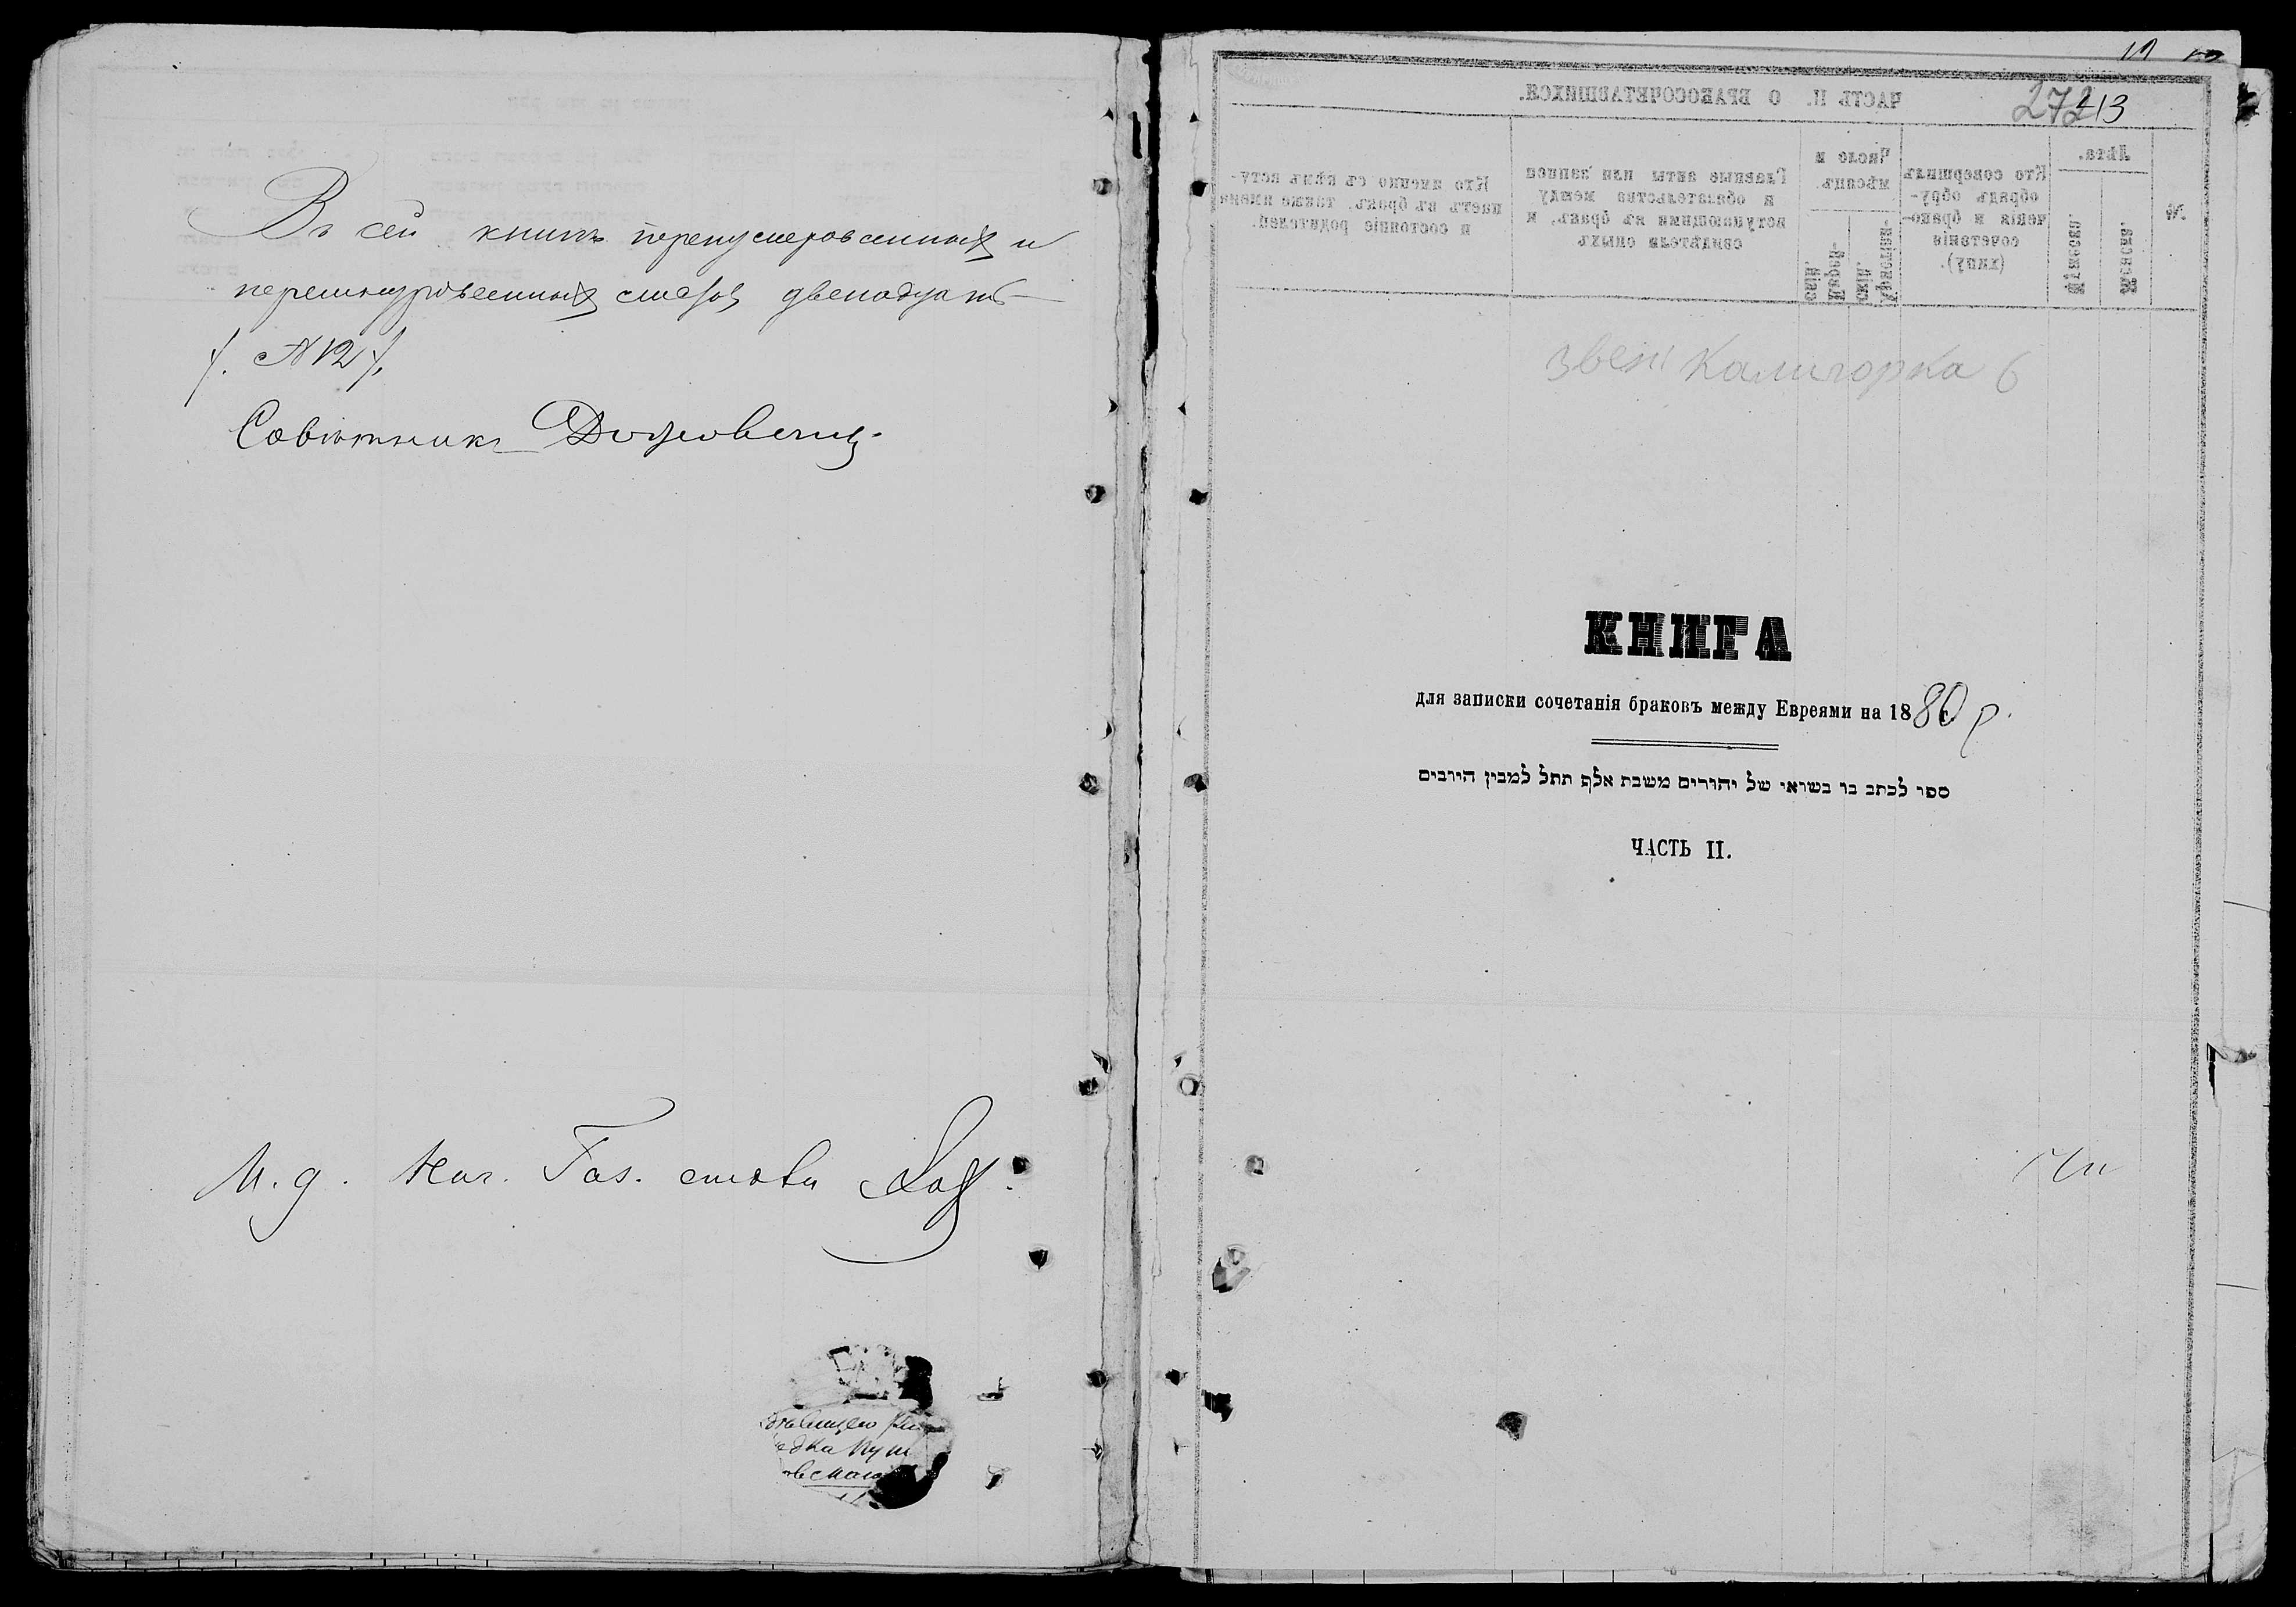 Въ сей книгѣ перенумерованныхъ и
перешнурованныхъ листовъ двенадцать
/. №12 /.
Совѣтникъ
И. д. Нач. Газ. стола
272 13
ЧАСТЬ II. О БРАКОСОЧЕТАВШИХСЯ.
№.
Лѣта.
Женска.
Мужеска.
Кто совершилъ
обрядъ обру-
ченія и брако-
сочетанія
(хупу).
Число и
мѣсяцъ.
Христіан-
скій.
Еврей-
скій.
Главные акты или записи
и обязательства между
вступающими въ бракъ, и
свидѣтели оныхъ
Кто именно съ кѣмъ всту-
паетъ въ бракъ, также имена
и состояніе родителей.
Звен Калигорка 6
КНИГА
для записки сочетанія браковъ между Евреями на 1880 г.
ספר לכתב בו נשואי של יהודים משנת אלף תתל למנין הירבים
ЧАСТЬ II.